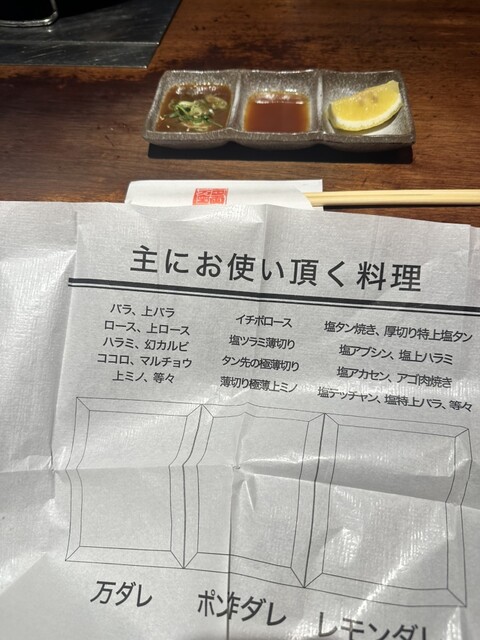 主にお使い頂く料理
バラ、上バラ
ロース、上ロース
ハラミ、幻カルビ
ココロ、マルチョウ
上ミノ、等々
イチボロース
塩ツラミ薄切り
タン先の極薄切り
薄切り極薄上ミノ
塩タン焼き、厚切り特上塩タン
塩アブシン、塩上ハラミ
塩アカセン、アゴ肉焼き
塩テッチャン、塩特上バラ、等々
万ダレ
ポン酢ダレ
レモンダレ